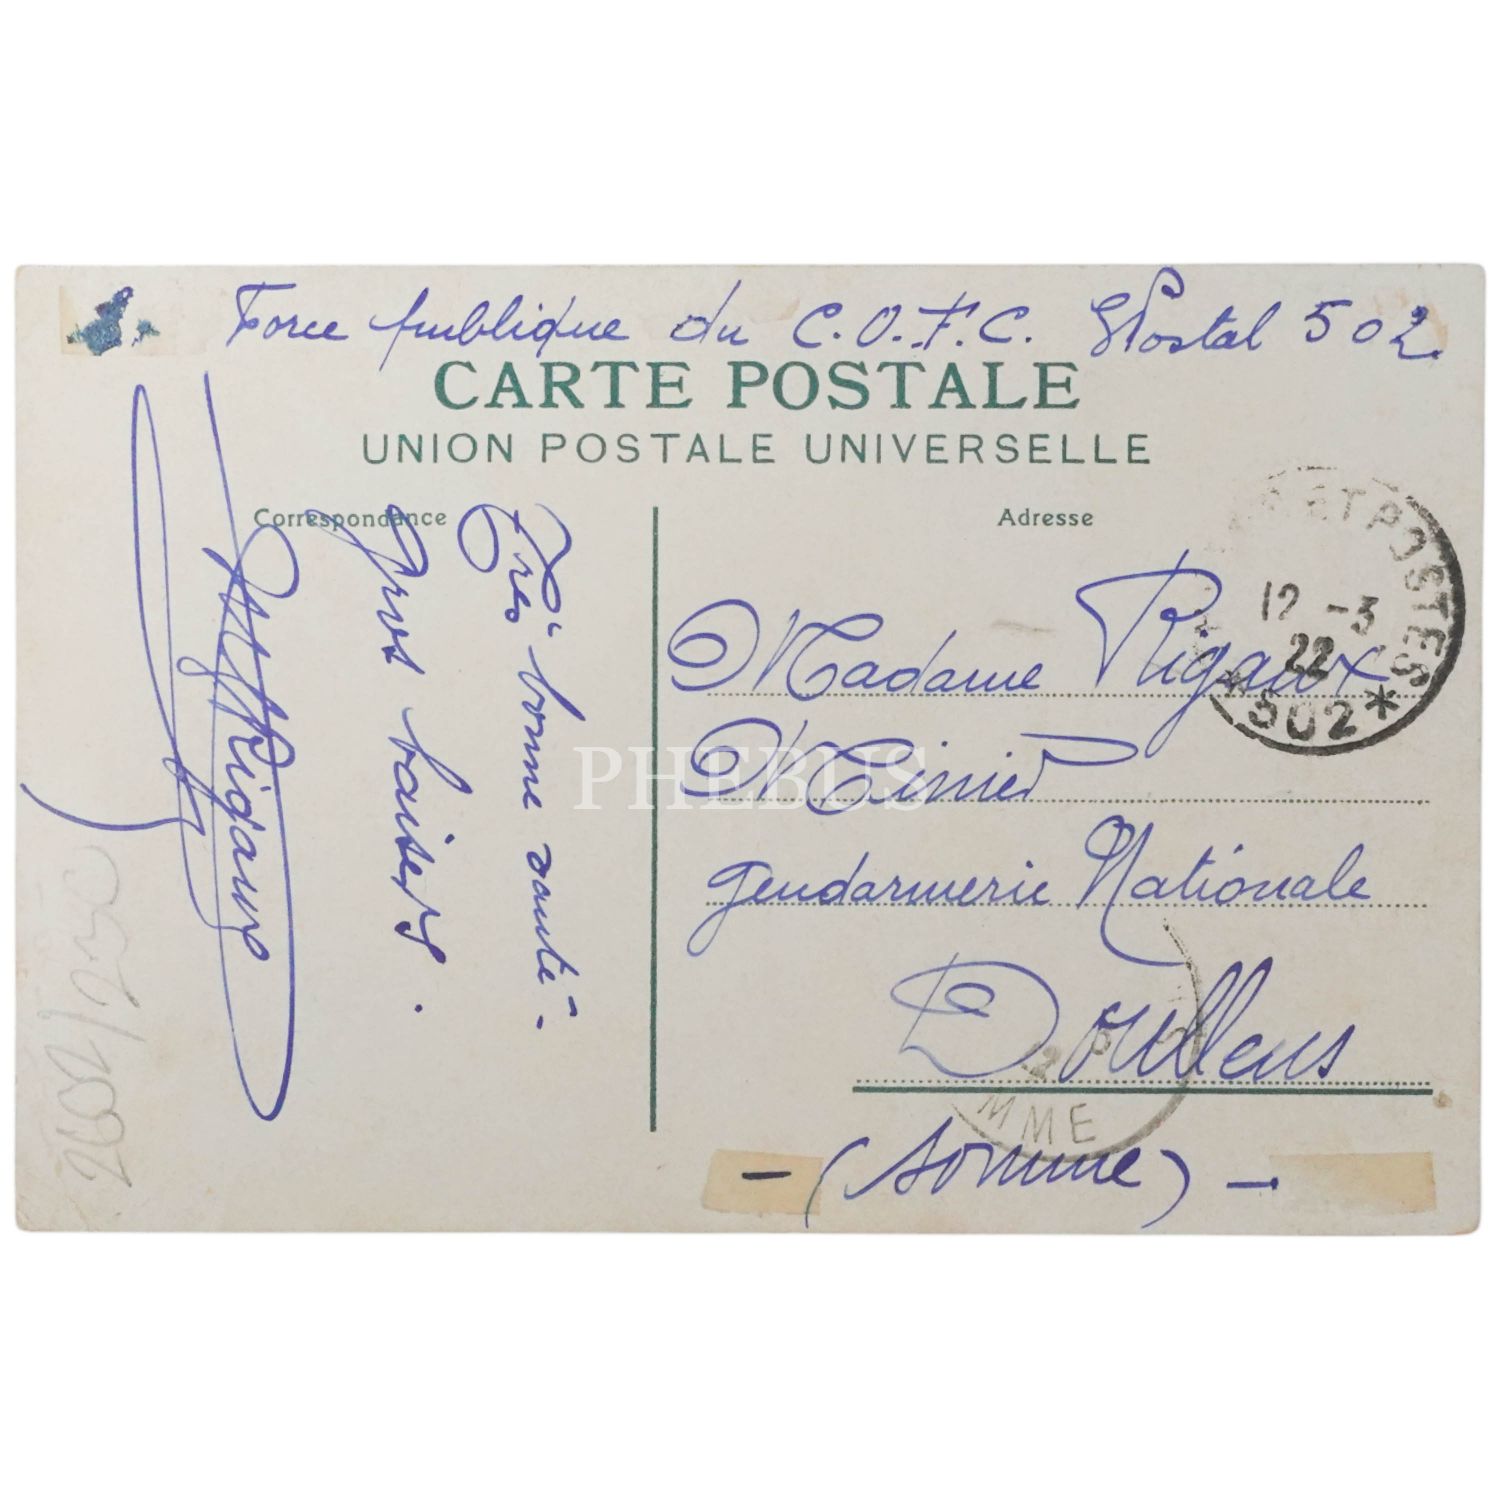 Force publique du C.O.F.C. Postal 502
CARTE POSTALE
UNION POSTALE UNIVERSELLE
Correspondance
Adresse
Très bonne santé -
gros baisers.
Rigaux
Madame Rigaux
gendarmerie Nationale
Doullens
- (Somme) -
ET POSTES
12 -3
22
* 502 *
MME
PHEBUS
2602/230